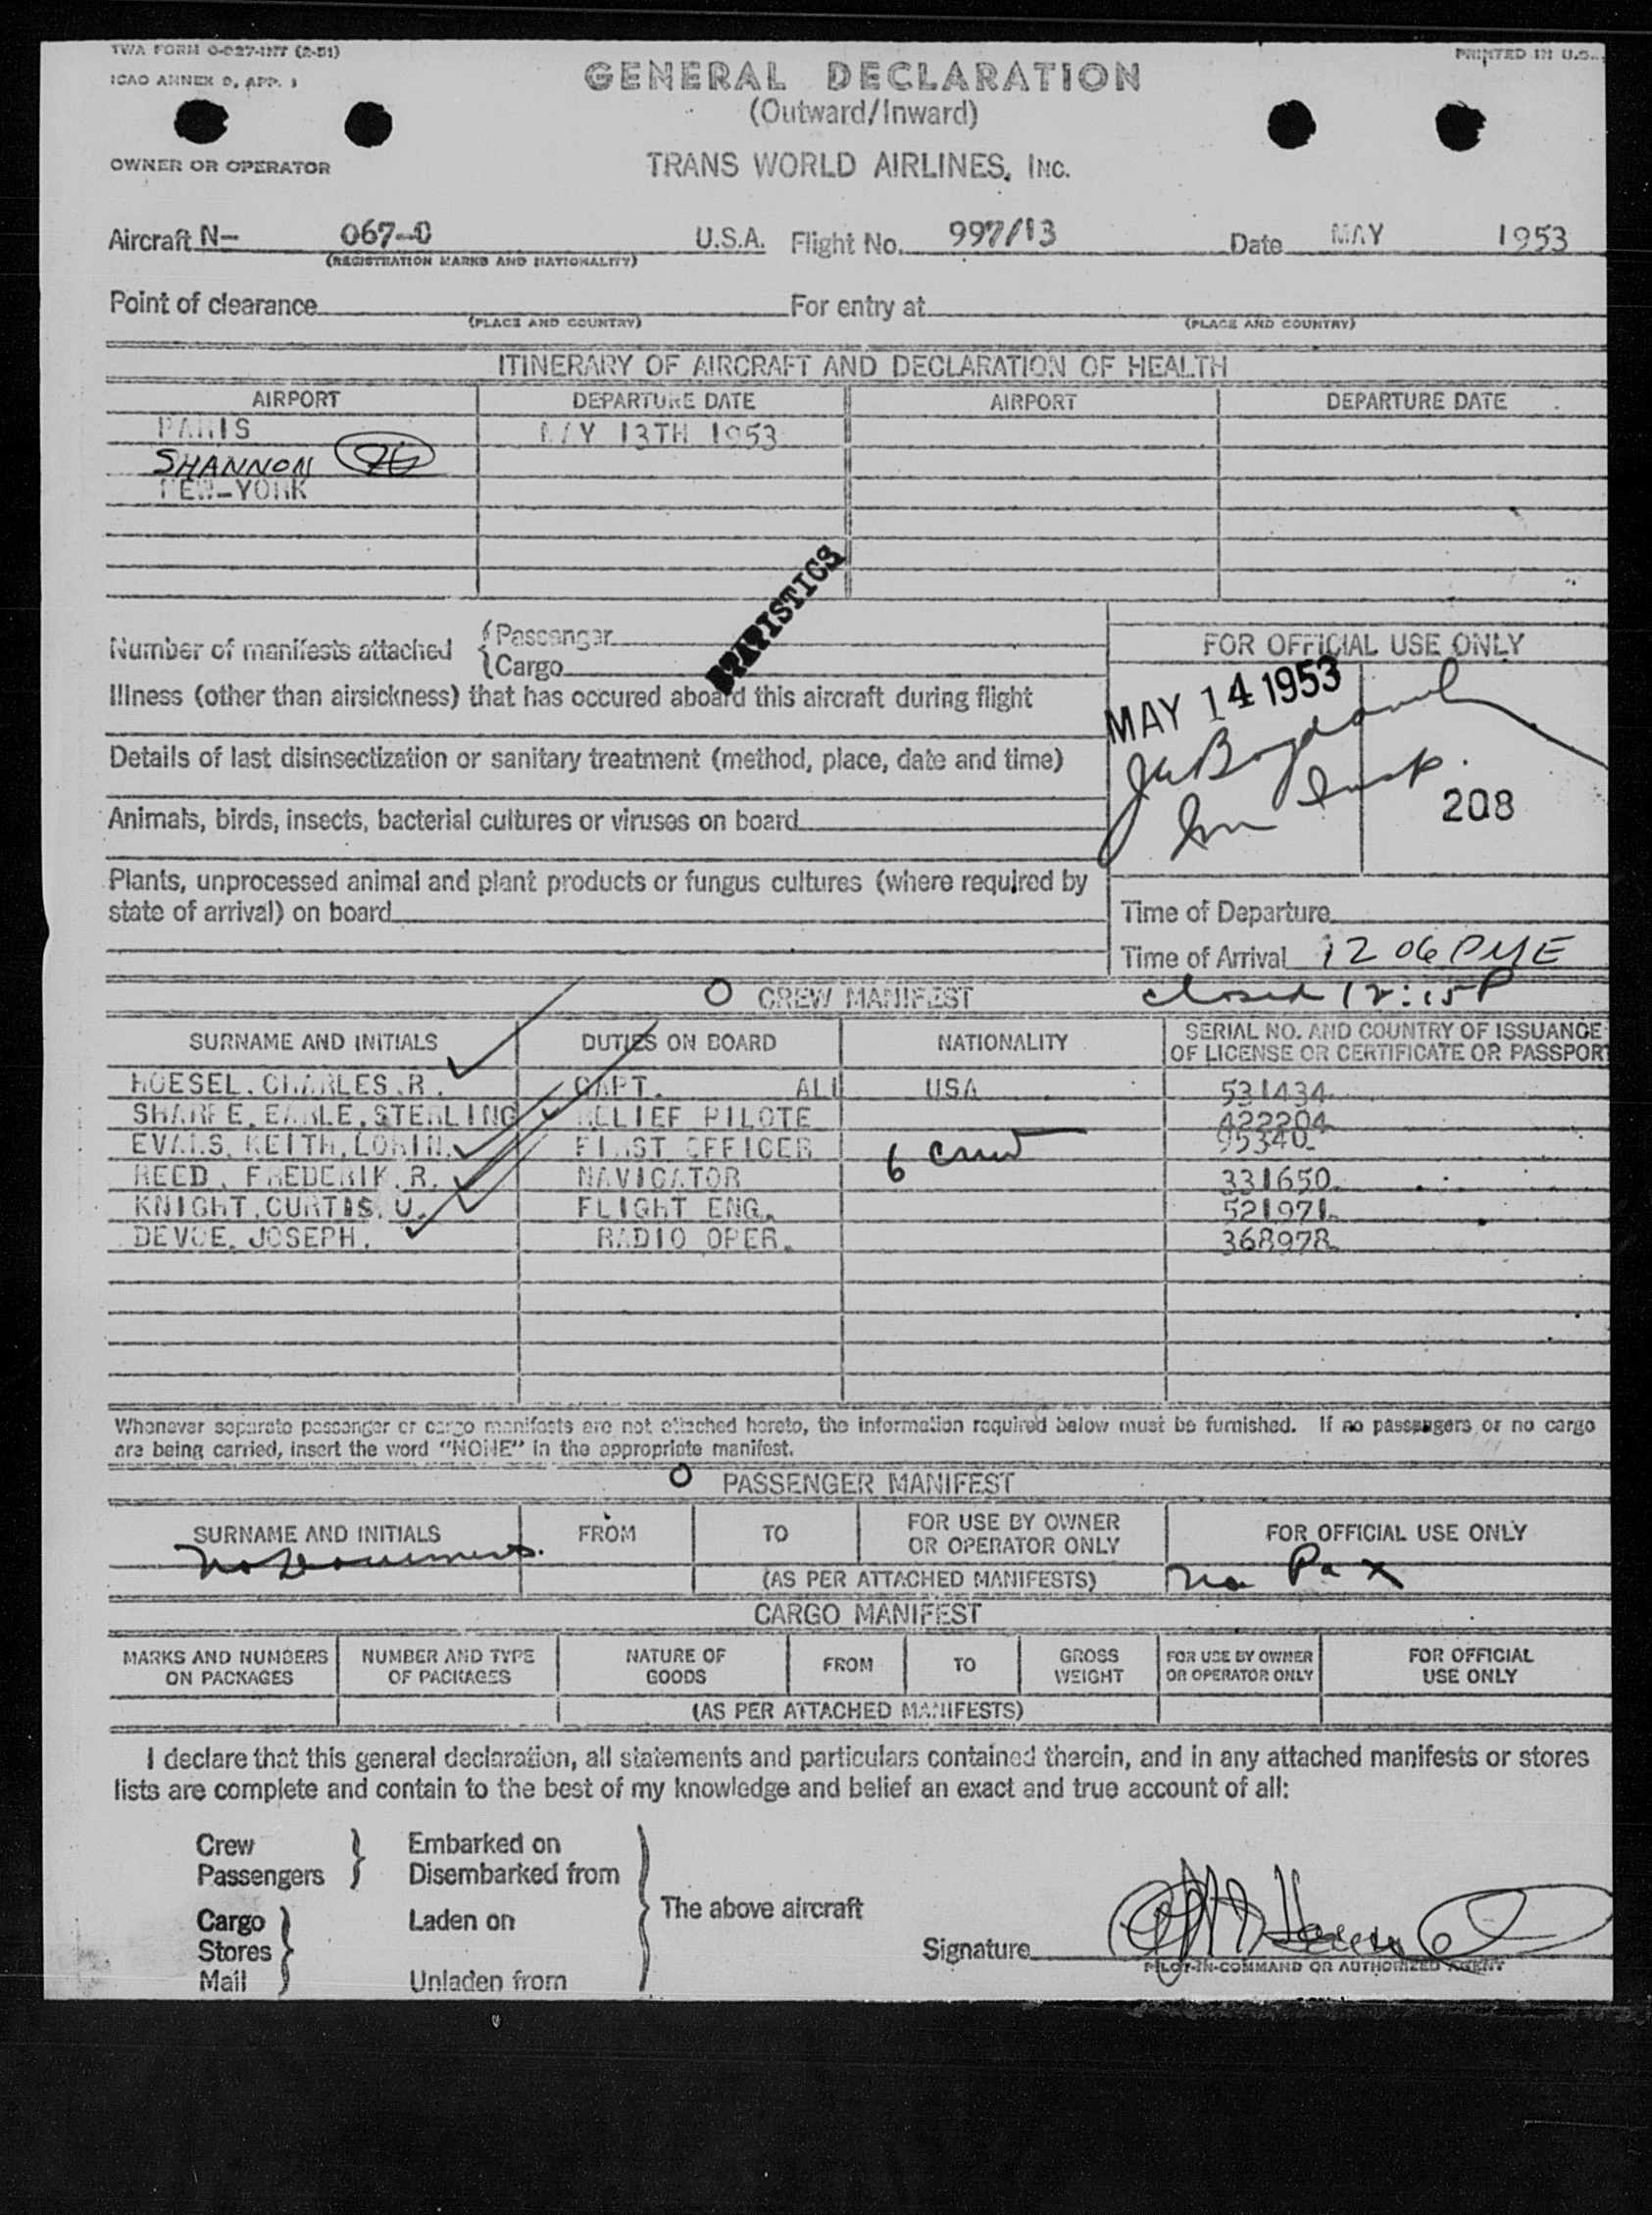 TWA FORM O-927-INT (2-51)
PRINTED IN U.S.
ICAO ANNEX 9, APP. 1
GENERAL DECLARATION
(Outward/Inward)
OWNER OR OPERATOR
TRANS WORLD AIRLINES, INC.
Aircraft N- 067-C U.S.A. Flight No. 997/13 Date MAY 1953
(REGISTRATION MARKS AND NATIONALITY)
Point of clearance For entry at
(PLACE AND COUNTRY) (PLACE AND COUNTRY)
ITINERARY OF AIRCRAFT AND DECLARATION OF HEALTH
AIRPORT DEPARTURE DATE AIRPORT DEPARTURE DATE
PARIS MAY 13TH 1953
SHANNON
NEW-YORK
STATISTICS
Number of manifests attached { Passenger
{ Cargo
FOR OFFICIAL USE ONLY
MAY 14 1953
Illness (other than airsickness) that has occured aboard this aircraft during flight
Details of last disinsectization or sanitary treatment (method, place, date and time)
208
Animals, birds, insects, bacterial cultures or viruses on board
Plants, unprocessed animal and plant products or fungus cultures (where required by
state of arrival) on board
Time of Departure
Time of Arrival 12 06 PME
closed 12:15P
CREW MANIFEST
SURNAME AND INITIALS DUTIES ON BOARD NATIONALITY SERIAL NO. AND COUNTRY OF ISSUANCE
OF LICENSE OR CERTIFICATE OR PASSPORT
HOESEL.CHARLES.R. CAPT. ALL USA 531434
SHARPE.EARLE.STERLING RELIEF PILOTE 422204
EVANS. KEITH.LORIN. FIRST OFFICER 6 crew 95340
REED. FREDERIK.R. NAVIGATOR 331650
KNIGHT.CURTIS.U. FLIGHT ENG. 521971
DEVOE. JOSEPH. RADIO OPER. 368978
Whenever separate passenger or cargo manifests are not attached hereto, the information required below must be furnished. If no passengers or no cargo
are being carried, insert the word "NONE" in the appropriate manifest.
PASSENGER MANIFEST
SURNAME AND INITIALS FROM TO FOR USE BY OWNER
OR OPERATOR ONLY
FOR OFFICIAL USE ONLY
(AS PER ATTACHED MANIFESTS) no Pax
CARGO MANIFEST
MARKS AND NUMBERS
ON PACKAGES
NUMBER AND TYPE
OF PACKAGES
NATURE OF
GOODS
FROM TO
GROSS
WEIGHT
FOR USE BY OWNER
OR OPERATOR ONLY
FOR OFFICIAL
USE ONLY
(AS PER ATTACHED MANIFESTS)
I declare that this general declaration, all statements and particulars contained therein, and in any attached manifests or stores
lists are complete and contain to the best of my knowledge and belief an exact and true account of all:
Crew Embarked on
Passengers Disembarked from
The above aircraft
Cargo Laden on
Stores
Mail Unladen from
Signature
PILOT-IN-COMMAND OR AUTHORIZED AGENT